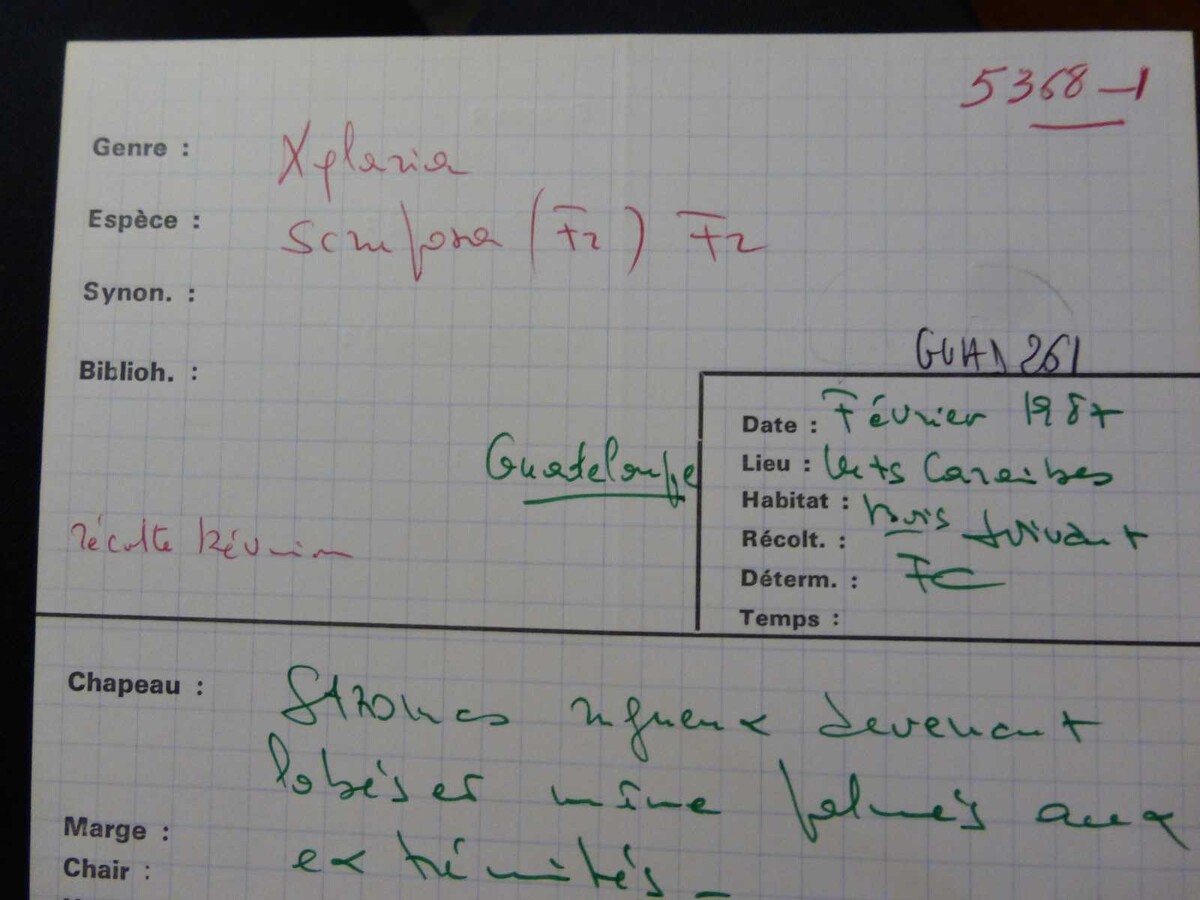 5368-1
Genre : Xylaria
Espèce : scruposa (Fr) Fr
Synon. :
GUAD 261
Biblioh. :
Date : Février 1987
Guadeloupe
Lieu : Mts Caraibes
Habitat : bois
Récolt. :
récolte Réunion
Déterm. : FC
Temps :
Chapeau : Stromas rugueux devenant
lobés et même palmés aux
Marge :
Chair : extrémités -